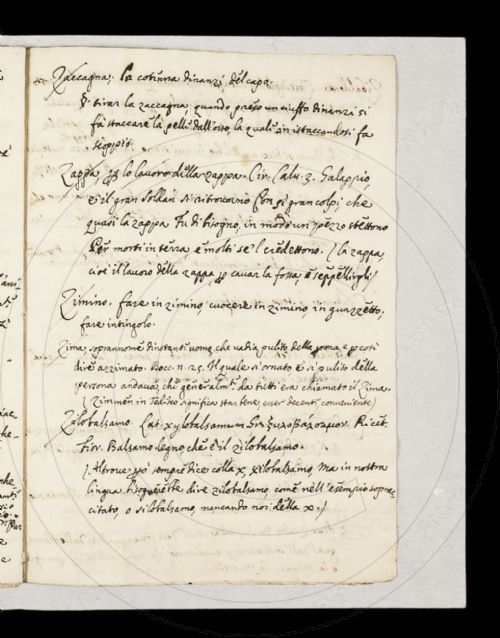 Zaccagna. la cotenna dinanzi del capo.
Si tirar la zaccagna, quando preso un ciuffo dinanzi si
fà staccare la pelle dall'osso, la quale in istaccandosi fa
scoppio.
Zappa, per lo lavoro della zappa. Cir. Calv. 3. Galappio,
e il gran Soldan si ritrovorno Con sì gran colpi, che
quasi la zappa Fu di bisogno, in modo un pezzo stettono
Per morti in terra, e molti se 'l credettono. (la zappa,
cioè il lavoro della zappa per cavar la fossa, e seppellirgli)
Zimino. fare in zimino, cuocere in zimino in guazzetto,
fare intingolo.
Zima, soprannome dinotante uomo, che vadia pulito della persona e per così
dire azzimato. Bocc. n. 25. Il quale sì ornato e sì pulito della
persona andava, che generalmente da tutti era chiamato il Zima.
(Zimmen in Tedesco significa star bene, esser decente, conveniente)
Zilobalsamo. Lat. xylobalsamum Gr. ξυλοβάλσαμον. Ricet.
Fior. Balsamo legno, che è il zilobalsamo.
(Altrove poi sempre dice colla x, xilobalsamo, ma in nostra
lingua dire zilobalsamo, come nell'esempio soprac
citato, o silobalsamo, mancando noi della x.)